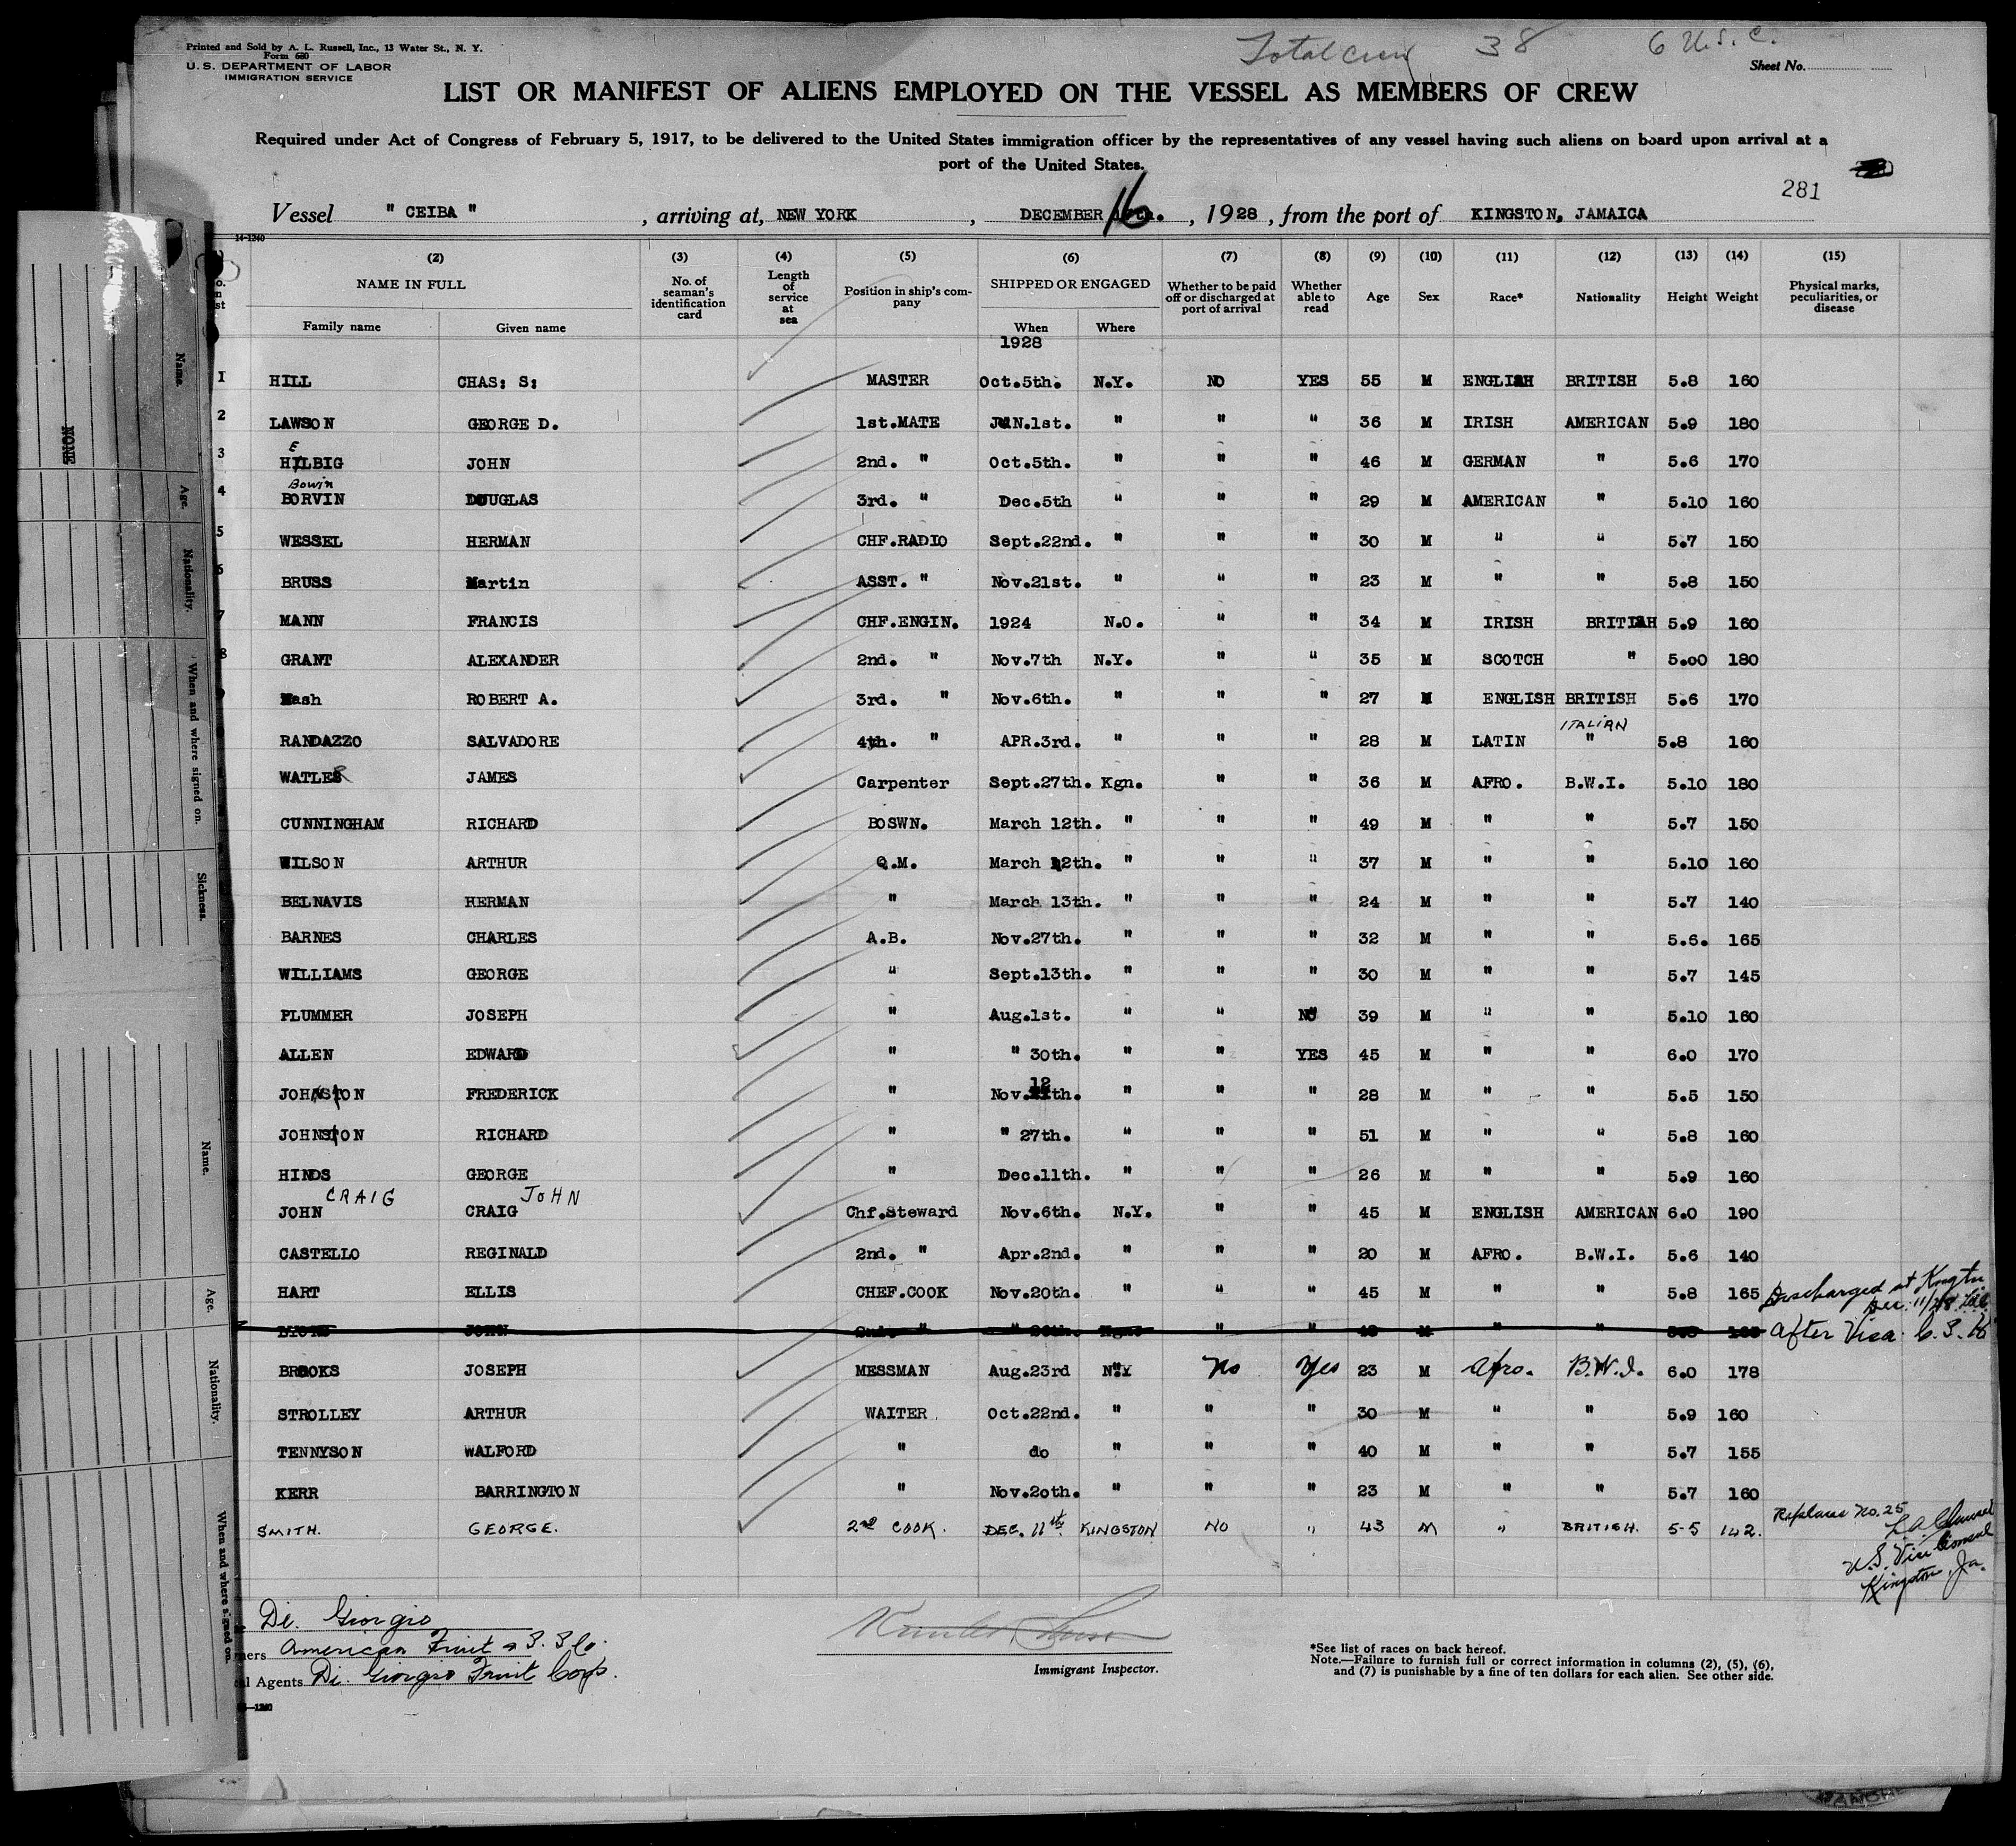 Printed and Sold by A. L. Russell, Inc., 13 Water St., N. Y.
Form 680
U. S. DEPARTMENT OF LABOR
IMMIGRATION SERVICE
Total crew 38 6 U.S.C.
Sheet No.
LIST OR MANIFEST OF ALIENS EMPLOYED ON THE VESSEL AS MEMBERS OF CREW
Required under Act of Congress of February 5, 1917, to be delivered to the United States immigration officer by the representatives of any vessel having such aliens on board upon arrival at a
port of the United States.
281
Vessel " CEIBA " , arriving at, NEW YORK , DECEMBER 16th. , 1928 , from the port of KINGSTON, JAMAICA
14-1240
(2) (3) (4) (5) (6) (7) (8) (9) (10) (11) (12) (13) (14) (15)
NAME IN FULL No. of seaman's identification card Length of service at sea Position in ship's company SHIPPED OR ENGAGED Whether to be paid off or discharged at port of arrival Whether able to read Age Sex Race* Nationality Height Weight Physical marks, peculiarities, or disease
Family name Given name When Where
1928
1 HILL CHAS: S: MASTER Oct.5th. N.Y. NO YES 55 M ENGLISH BRITISH 5.8 160
2 LAWSON GEORGE D. 1st.MATE JUN.1st. " " " 36 M IRISH AMERICAN 5.9 180
E
3 HILBIG JOHN 2nd. " Oct.5th. " " " 46 M GERMAN " 5.6 170
Bowin
4 BORVIN DOUGLAS 3rd. " Dec.5th " " " 29 M AMERICAN " 5.10 160
5 WESSEL HERMAN CHF.RADIO Sept.22nd. " " " 30 M " " 5.7 150
6 BRUSS Martin ASST. " Nov.21st. " " " 23 M " " 5.8 150
7 MANN FRANCIS CHF.ENGIN. 1924 N.O. " " 34 M IRISH BRITISH 5.9 160
8 GRANT ALEXANDER 2nd. " Nov.7th N.Y. " " 35 M SCOTCH " 5.00 180
Nash ROBERT A. 3rd. " Nov.6th. " " " 27 M ENGLISH BRITISH 5.6 170
ITALIAN
RANDAZZO SALVADORE 4th. " APR.3rd. " " " 28 M LATIN " 5.8 160
WATLER JAMES Carpenter Sept.27th. Kgn. " " 36 M AFRO. B.W.I. 5.10 180
CUNNINGHAM RICHARD BOSWN. March 12th. " " " 49 M " " 5.7 150
WILSON ARTHUR Q.M. March 12th. " " " 37 M " " 5.10 160
BELNAVIS HERMAN " March 13th. " " " 24 M " " 5.7 140
BARNES CHARLES A.B. Nov.27th. " " " 32 M " " 5.6. 165
WILLIAMS GEORGE " Sept.13th. " " " 30 M " " 5.7 145
PLUMMER JOSEPH " Aug.1st. " " NO 39 M " " 5.10 160
ALLEN EDWARD " " 30th. " " YES 45 M " " 6.0 170
JOHNSTON FREDERICK " Nov.12th. " " " 28 M " " 5.5 150
JOHNSTON RICHARD " " 27th. " " " 51 M " " 5.8 160
HINDS GEORGE " Dec.11th. " " " 26 M " " 5.9 160
CRAIG JOHN
JOHN CRAIG Chf.Steward Nov.6th. N.Y. " " 45 M ENGLISH AMERICAN 6.0 190
CASTELLO REGINALD 2nd. " Apr.2nd. " " " 20 M AFRO. B.W.I. 5.6 140
HART ELLIS CHEF.COOK Nov.20th. " " " 45 M " " 5.8 165 Discharged at Kingston
Dec. 11/28
JOHN 2nd. " " " " " " After Visa
BROOKS JOSEPH MESSMAN Aug.23rd N.Y No Yes 23 M Afro. B.W.I. 6.0 178
STROLLEY ARTHUR WAITER Oct.22nd. " " " 30 M " " 5.9 160
TENNYSON WALFORD " do " " " 40 M " " 5.7 155
KERR BARRINGTON " Nov.20th. " " " 23 M " " 5.7 160
SMITH. GEORGE. 2nd COOK. DEC. 11th KINGSTON NO " 43 M " BRITISH. 5-5 142. Replaces No. 25
U.S. Vice Consul
Kingston, Ja.
Di. Giorgio
American Fruit & S.S Co.
Agents Di. Giorgio Fruit Corp.
Immigrant Inspector.
*See list of races on back hereof.
Note.—Failure to furnish full or correct information in columns (2), (5), (6),
and (7) is punishable by a fine of ten dollars for each alien. See other side.
—1240
Name.
NONE
Age.
Nationality.
When and where signed on.
Sickness.
Name.
Age.
Nationality.
When and where signed on.